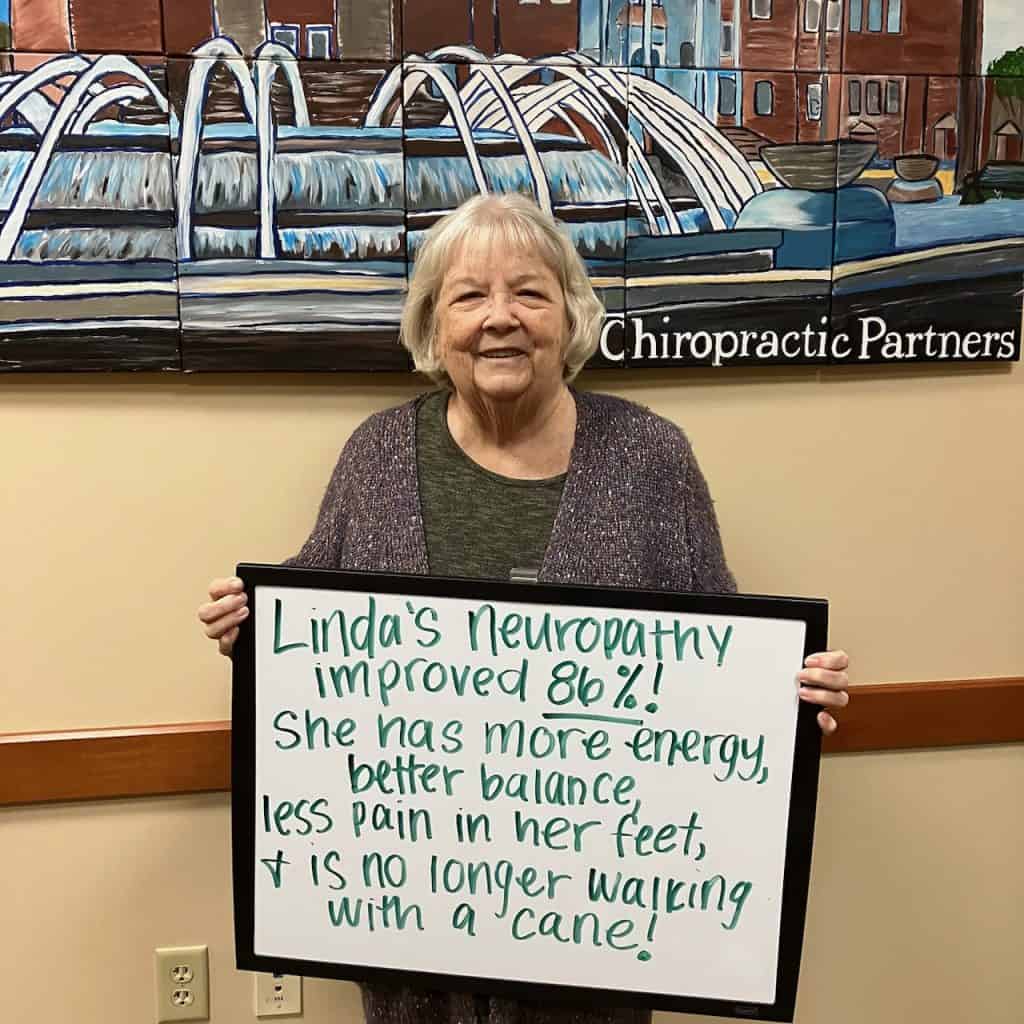 Chiropractic Partners
Linda's neuropathy
improved 86%!
She has more energy,
better balance,
less pain in her feet,
+ is no longer walking
with a cane!